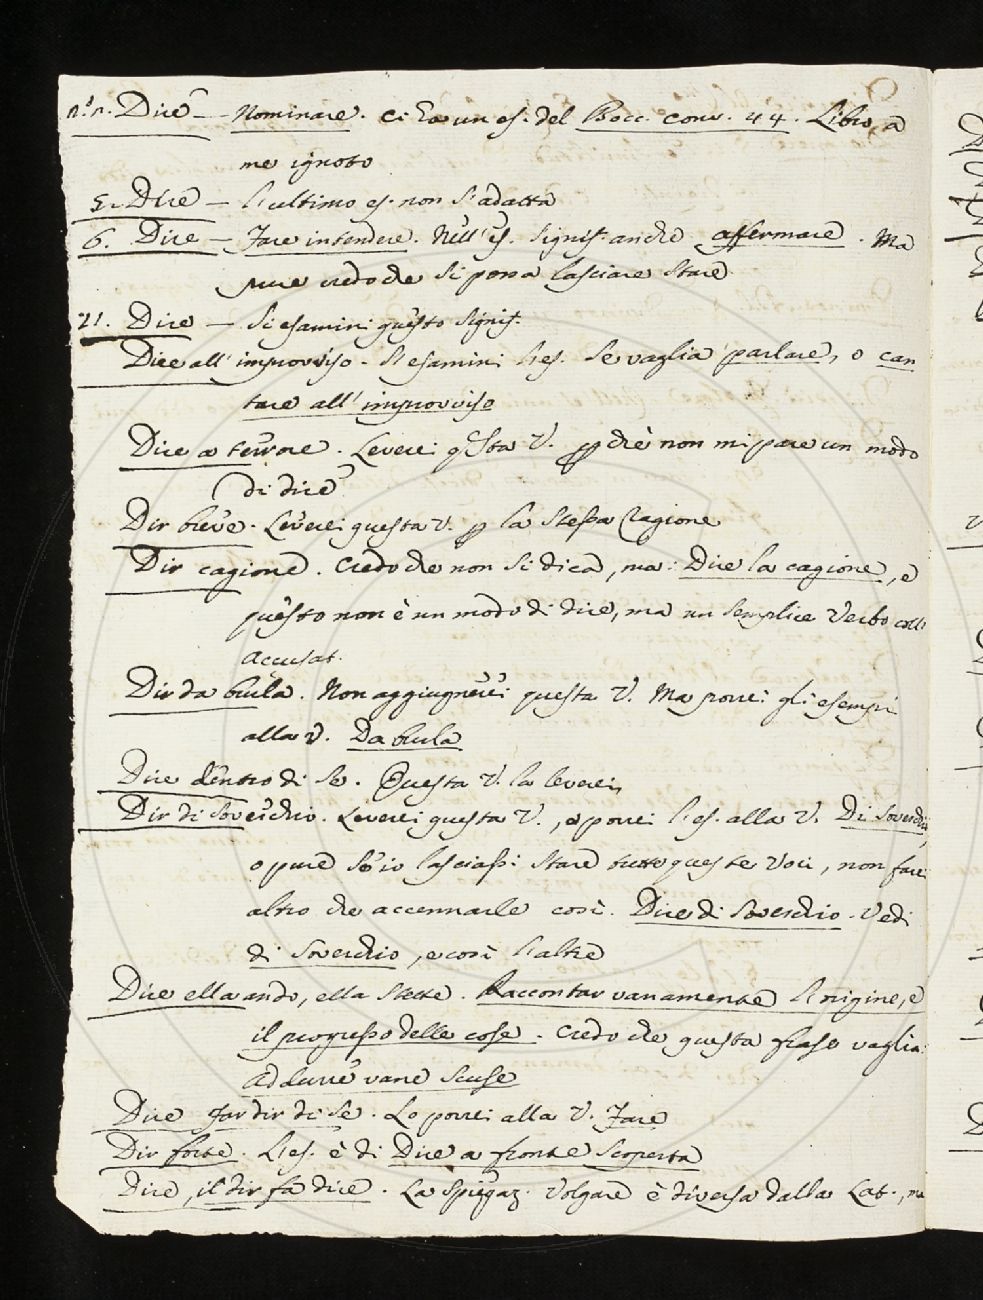 n.° n. Dire – Nominare. Ci ha un es. del Bocc. Conv. 44. Libro, a
me ignoto
5. Dire – L'ultimo es. non s'adatta
6. Dire – Fare intendere. Nell'es. signif. anche affermare. Ma
pure credo che si possa lasciare stare
21. Dire – Si esamini questo signif.
Dire all'improvviso – Si esamini l'es. Se vaglia parlare, o can
tare all'improvviso
Dire a terrore. Leverei questa V. perchè non mi pare un modo
di dire
Dir breve. Leverei questa V. p la stessa ragione
Dir cagione. Credo che non si dica, ma: Dire la cagione, e
questo non è un modo di dire, ma un semplice Verbo coll'
accusat.
Dir da burla. Non aggiugnerei questa V. Ma porrei gli esempi
alla V. Da burla
Dire dentro di se. Questa V. la leverei
Dir di soverchio. Leverei questa V., e porrei l'es. alla V. Di soverchio,
o pure s'io lasciassi stare tutte queste Voci, non farei
altro che accennarle così. Dire di soverchio. Vedi
di soverchio, e così l'altre
Dire ella andò, ella stette. Raccontar vanamente l'origine, e
il progresso delle cose. Credo che questa frase vaglia:
addurre vane scuse
Dire Far dir di se. Lo porrei alla V. Fare
Dir forte. L'es. è di Dire a fronte scoperta
Dire, il dir fa dire. La spiegaz. Volgare è diversa dalla Lat., ma